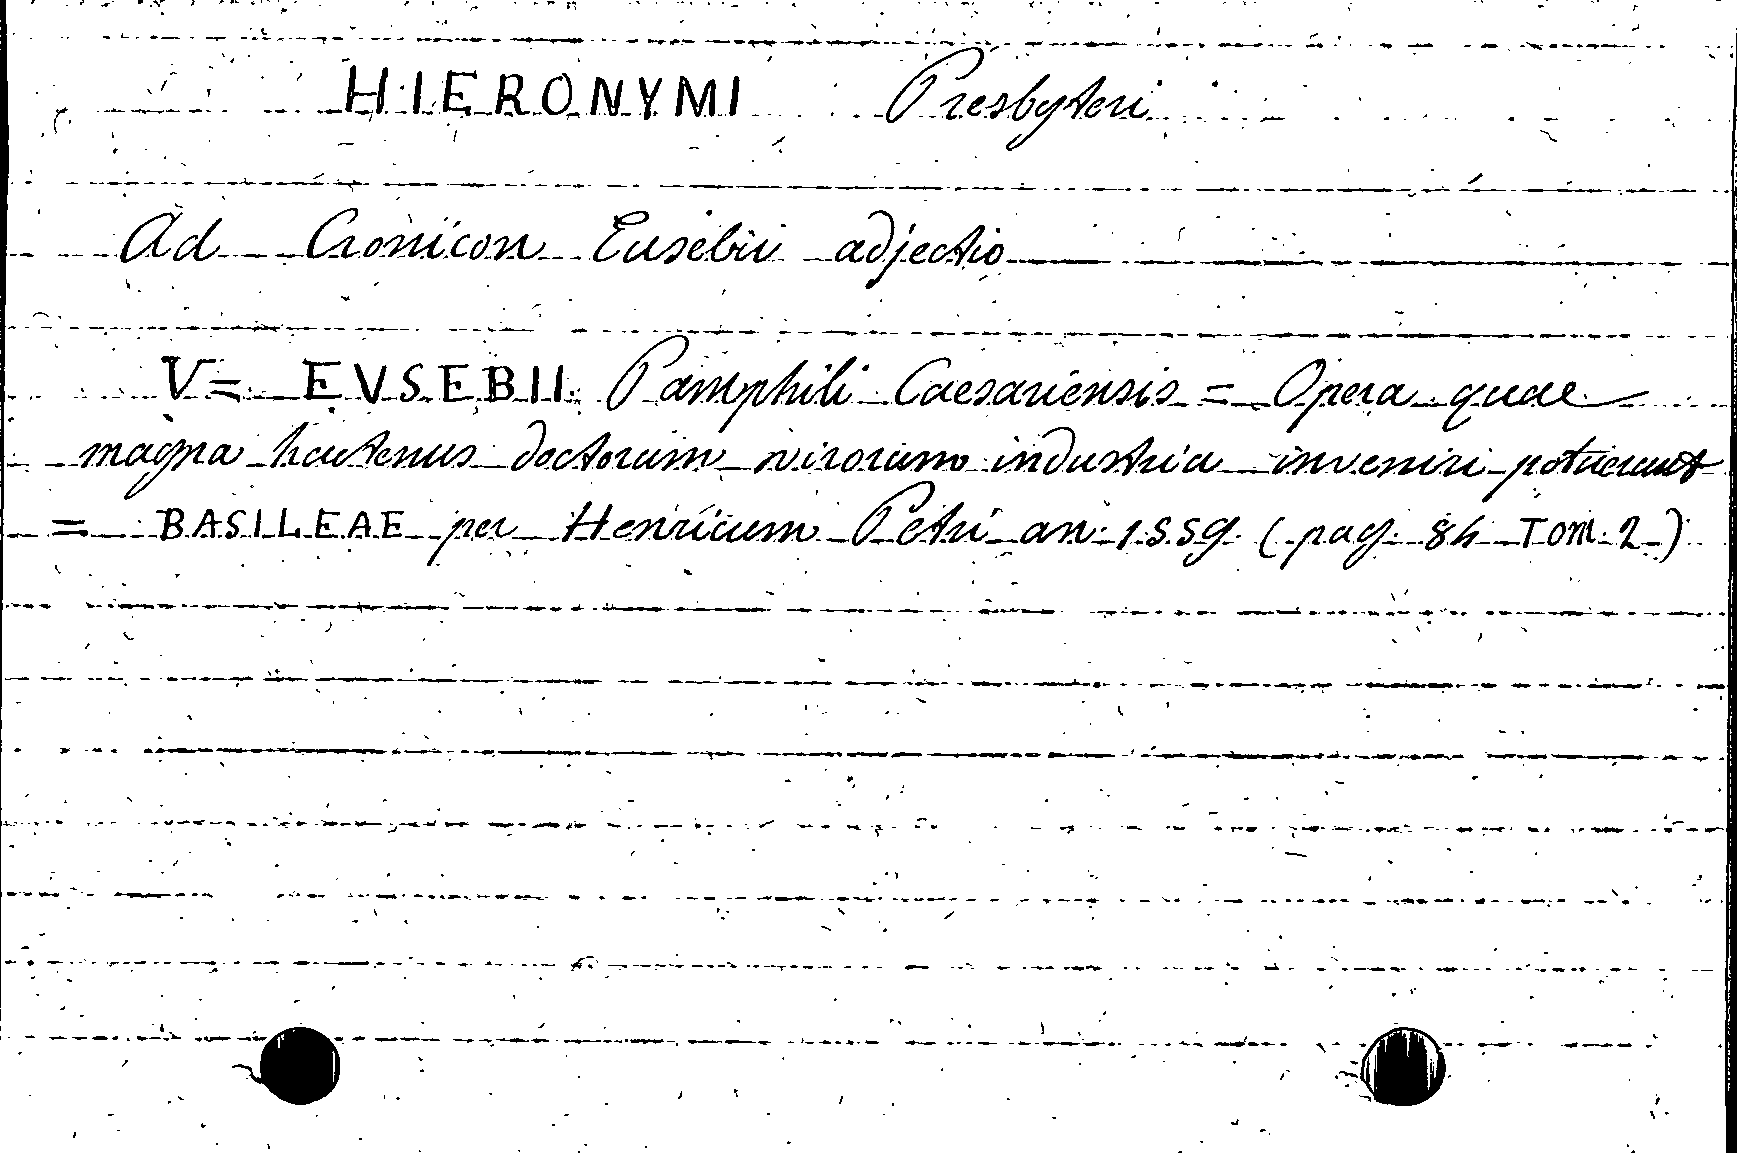 HIERONYMI Presbyteri
Ad Cronicon Eusebii adjectio
V= EVSEBII Pamphili Caesariensis = Opera quae
magna hactenus doctorum virorum industria inveniri potuerunt
= BASILEAE per Henricum Petri an. 1559. (pag. 84 Tom. 2)